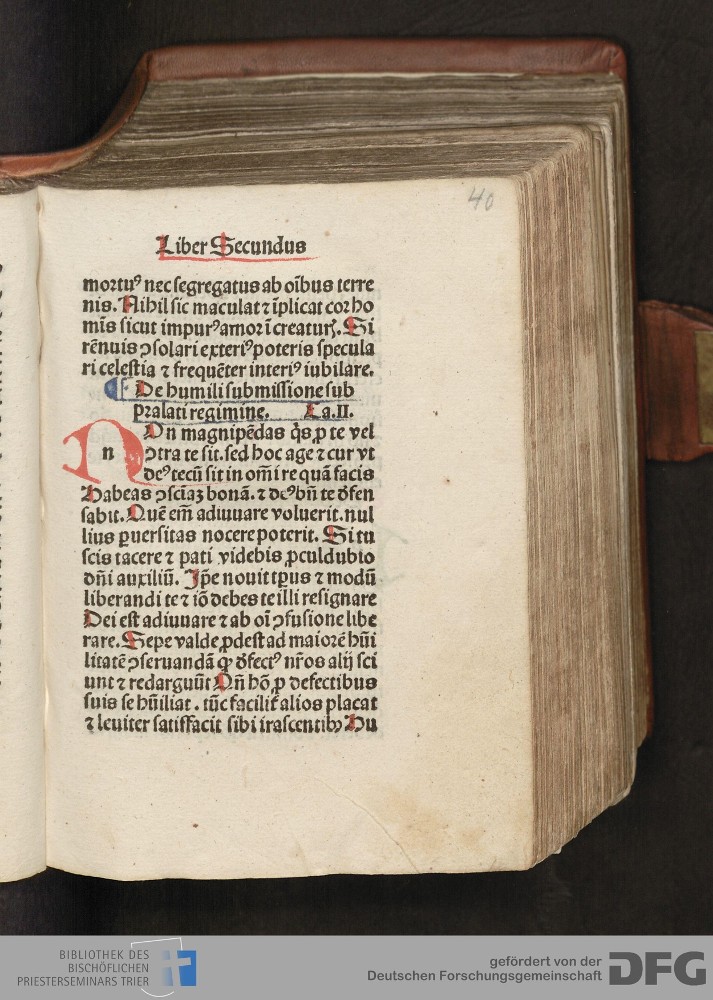 40
Liber Secundus
mortuꝰ nec segregatus ab oībus terre
nis. Nihil sic maculat ⁊ īplicat cor ho
mīs sicut impurꝰ amor ī creaturꝭ. Si
rēnuis ꝯsolari exteriꝰ poteris specula
ri celestia ⁊ frequēter interiꝰ iubilare.
De humili submissione sub
p̄lati regimine. Ca. II.
NOn magnipēdas q̇s ꝓ te vel
n ꝯtra te sit. sed hoc age ⁊ cur vt
deꝰ tecū sit in om̄i re quā facis
Habeas ꝯsciaꝫ bonā. ⁊ deꝰ bn̄ te d̄fen
sabit. Quē em̄ adiuuare voluerit. nul
lius ꝑuersitas nocere poterit. Si tu
scis tacere ⁊ pati videbis ꝓculdubio
dn̄i auxiliū. Ip̄e nouit tp̄us ⁊ modū
liberandi te ⁊ iō debes te illi resignare
Dei est adiuuare ⁊ ab oī ꝯfusione libe
rare. Sepe valde ꝓdest ad maiorē hūi
litatē ꝯseruandā ꝙ d̄fectꝰ nr̄os alij sci
unt ⁊ redarguūt Qn̄ hō ꝓ defectibus
suis se hūiliat. tūc facilit̄ alios placat
⁊ leuiter satisfacit sibi irascentibꝫ Hu
BIBLIOTHEK DES
BISCHÖFLICHEN
PRIESTERSEMINARS TRIER
gefördert von der
Deutschen Forschungsgemeinschaft
DFG